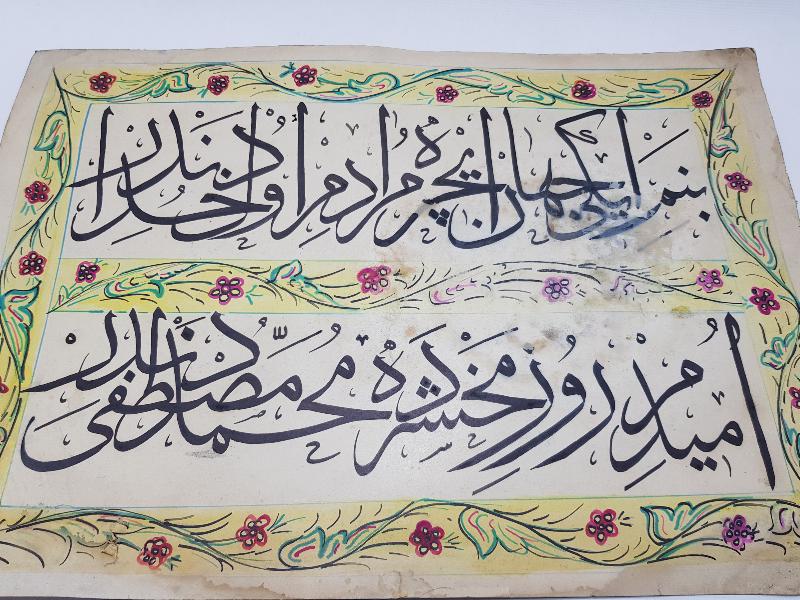 بنم ایکی جهان ایچره مرادم اول خدادندر
امیدم روز محشرده محمد مصطفى دندر